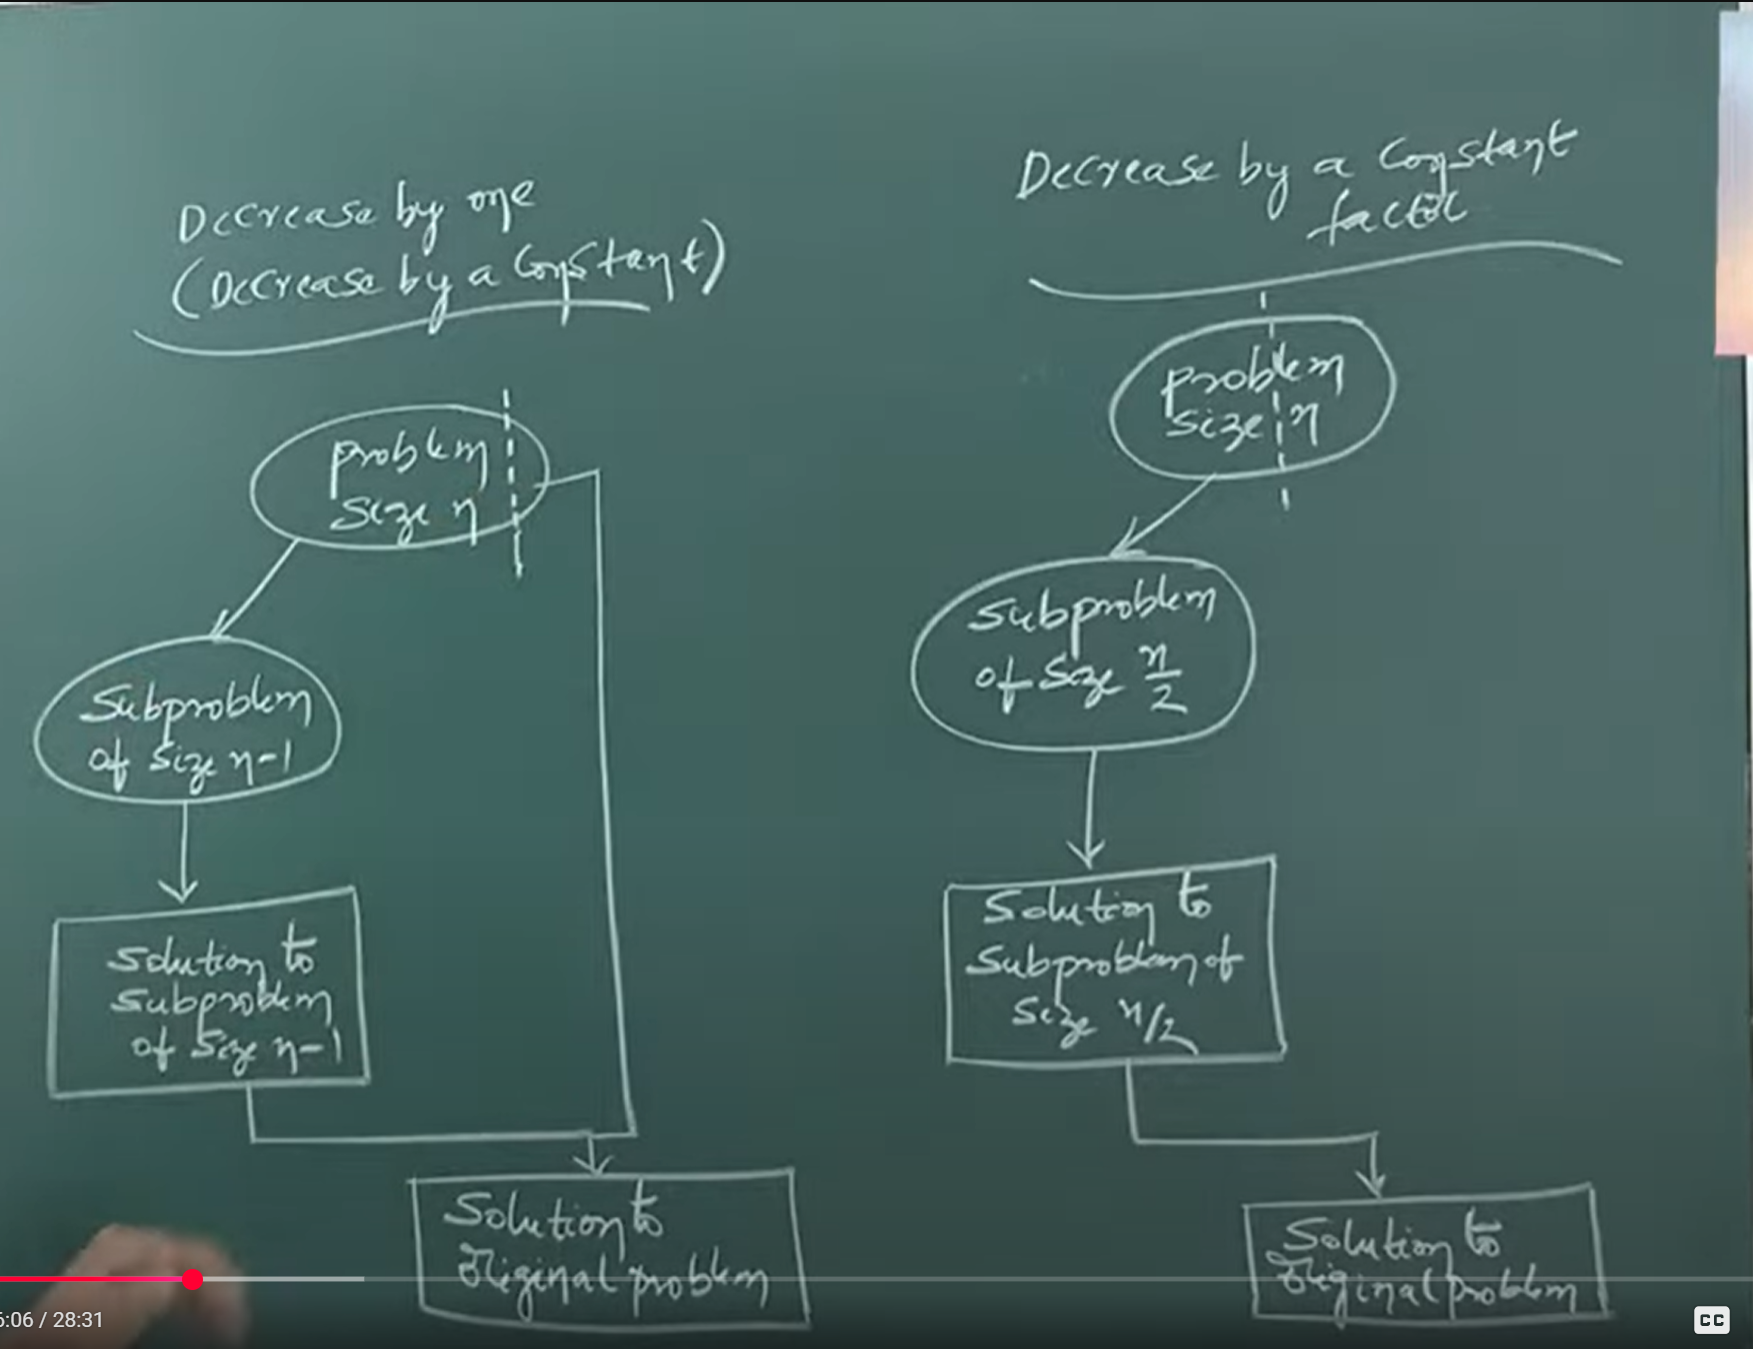 Decrease by one
(Decrease by a Constant)
problem
size n
Subproblem
of size n-1
Solution to
Subproblem
of size n-1
Solution to
Original problem
Decrease by a Constant
factor
Problem
size n
Subproblem
of size n/2
Solution to
Subproblem of
Size n/2
Solution to
Original problem
6:06 / 28:31
CC